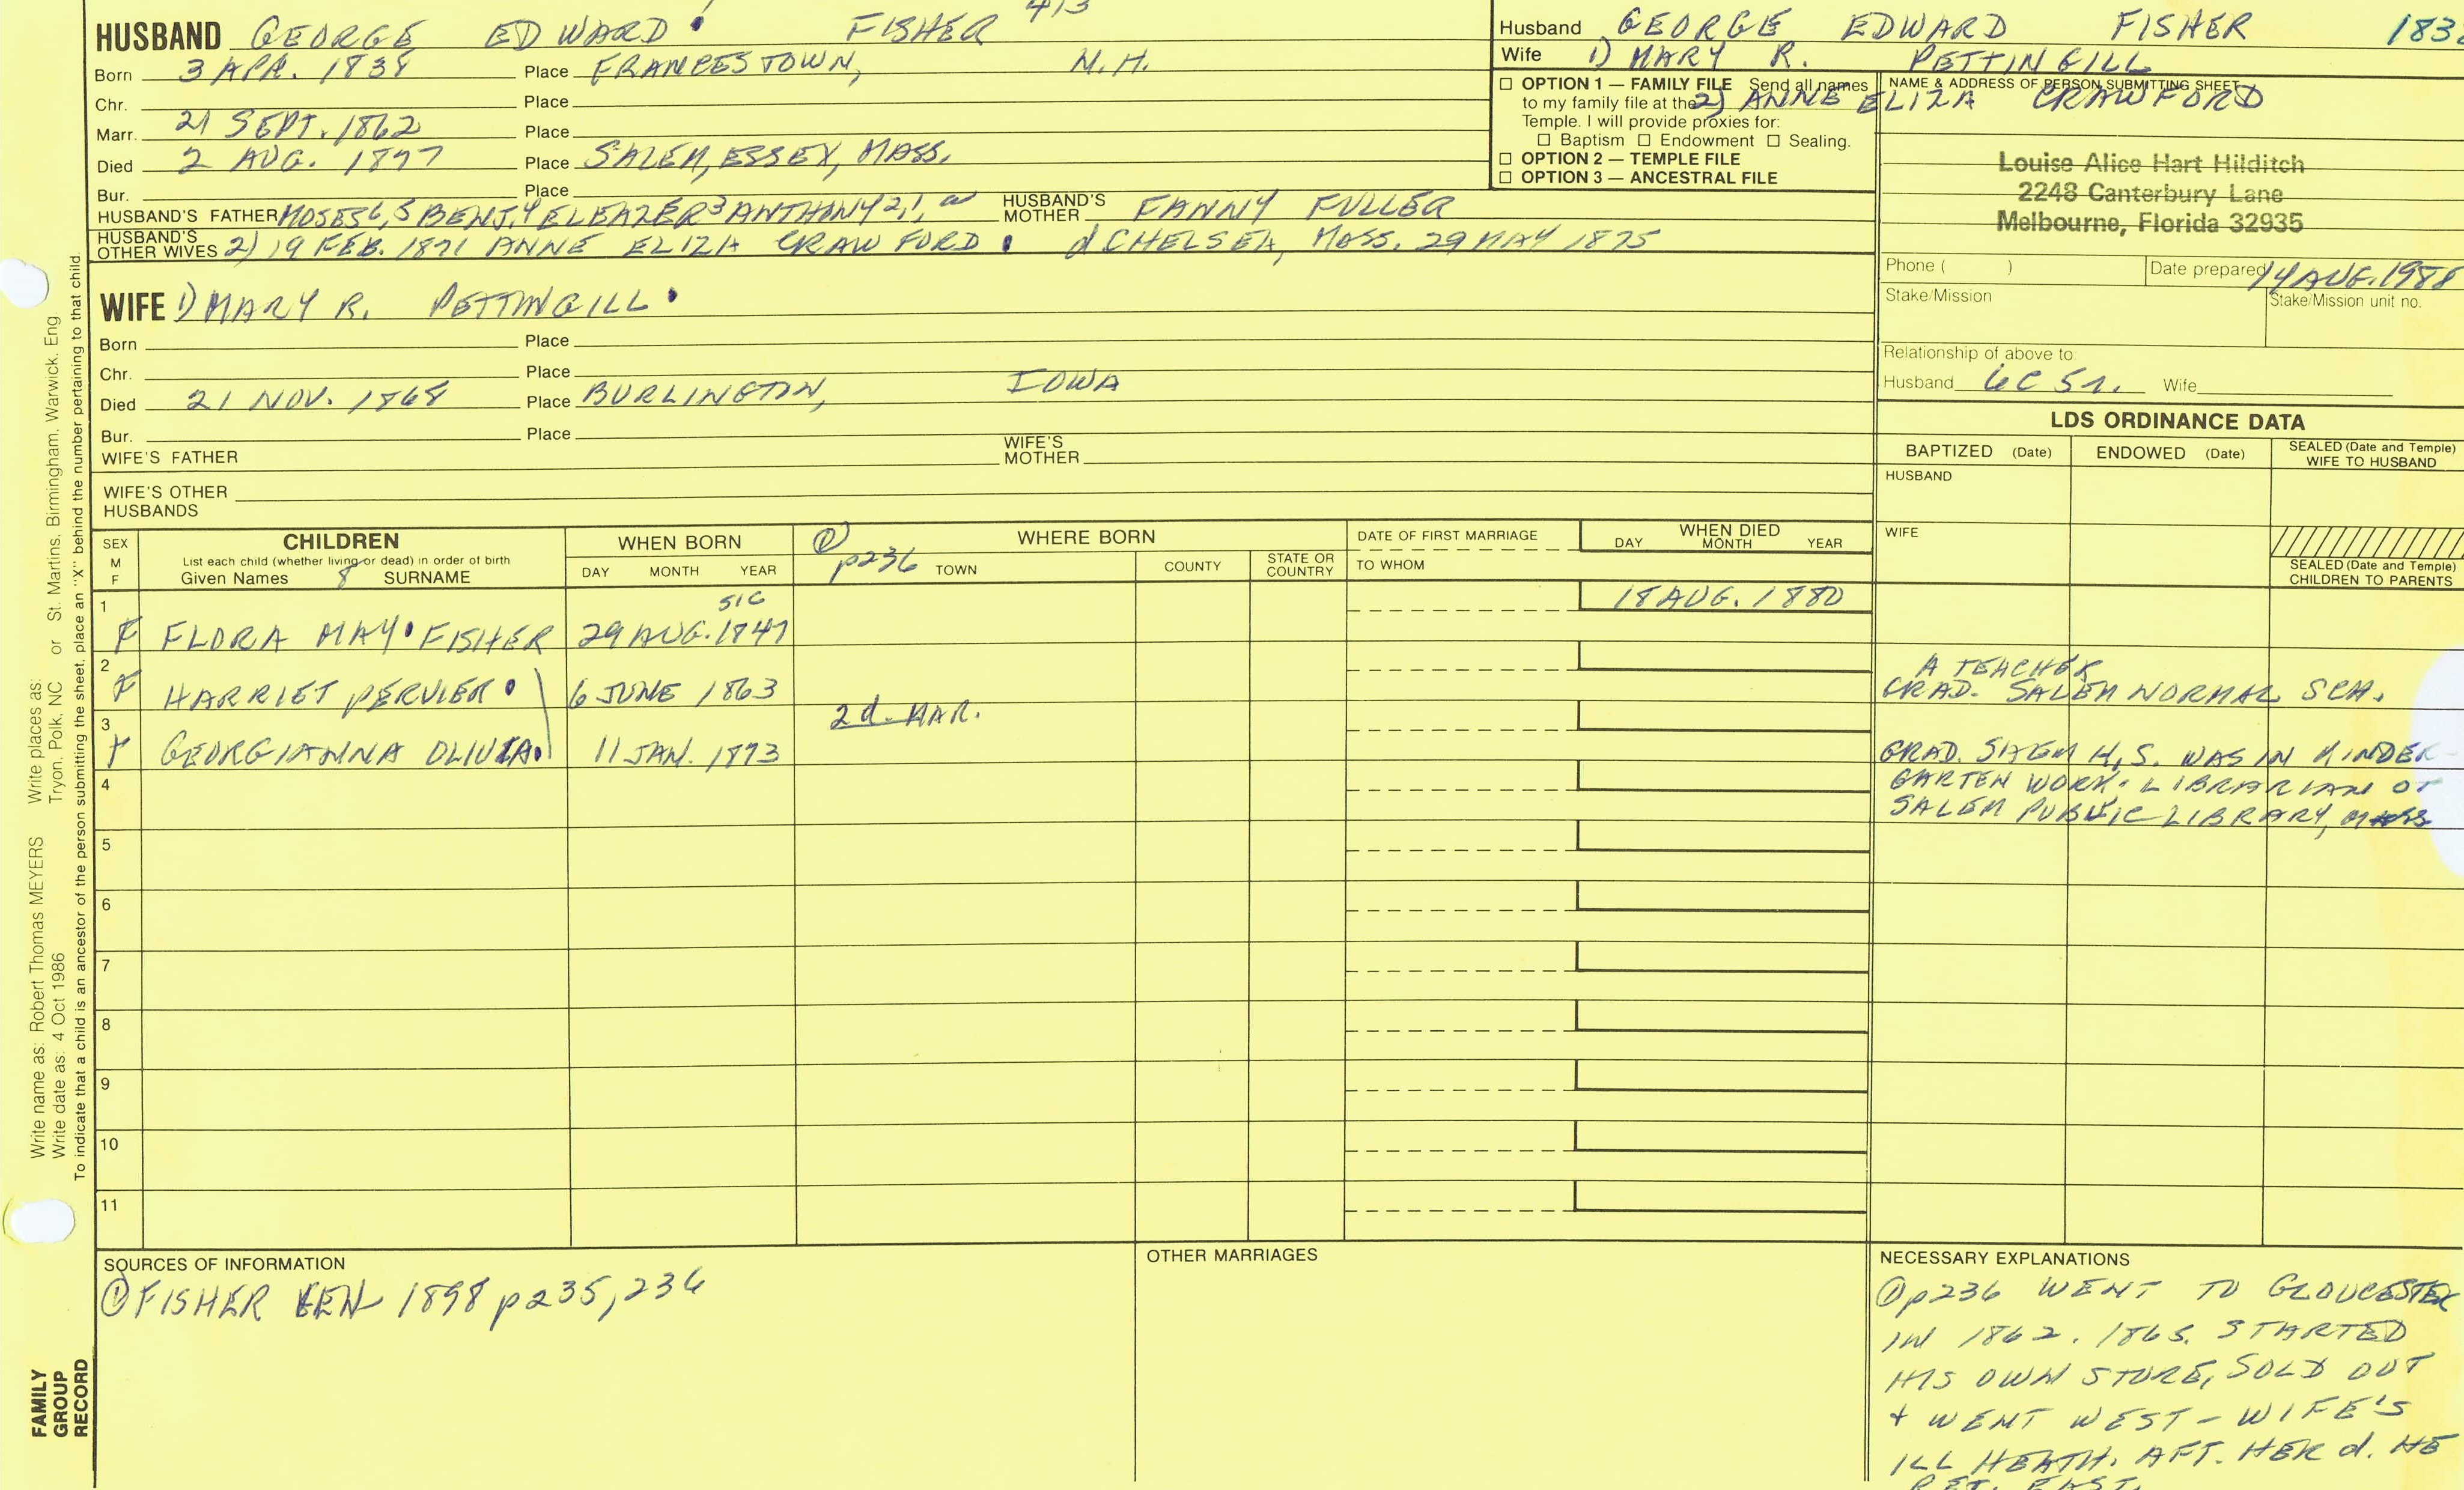 HUSBAND GEORGE EDWARD FISHER 413
Born 3 APR. 1838 Place FRANCESTOWN, N.H.
Chr. Place
Marr. 21 SEPT. 1862 Place
Died 2 AUG. 1897 Place SALEM, ESSEX, MASS.
Bur. Place
HUSBAND'S FATHER MOSES 6, 5 BENJ. 4 ELEAZER 3 ANTHONY 2, 1, HUSBAND'S MOTHER FANNY FULLER
HUSBAND'S OTHER WIVES 2) 19 FEB. 1871 ANNE ELIZA CRAWFORD d CHELSEA, MASS. 29 MAY 1875
Husband GEORGE EDWARD FISHER
Wife 1) MARY R. PETTINGILL
2) ANNE ELIZA CRAWFORD
☐ OPTION 1 — FAMILY FILE Send all names
to my family file at the
Temple. I will provide proxies for:
☐ Baptism ☐ Endowment ☐ Sealing.
☐ OPTION 2 — TEMPLE FILE
☐ OPTION 3 — ANCESTRAL FILE
NAME & ADDRESS OF PERSON SUBMITTING SHEET
Louise Alice Hart Hilditch
2248 Canterbury Lane
Melbourne, Florida 32935
Phone ( ) Date prepared 14 AUG. 1988
Stake/Mission Stake/Mission unit no.
Relationship of above to:
Husband 6C 5r. Wife
WIFE 1) MARY R. PETTINGILL
Born Place
Chr. Place
Died 21 NOV. 1868 Place BURLINGTON, IOWA
Bur. Place
WIFE'S FATHER WIFE'S MOTHER
WIFE'S OTHER HUSBANDS
LDS ORDINANCE DATA
BAPTIZED (Date) ENDOWED (Date) SEALED (Date and Temple) WIFE TO HUSBAND
HUSBAND
WIFE
SEALED (Date and Temple) CHILDREN TO PARENTS
SEX M F
CHILDREN
List each child (whether living or dead) in order of birth
Given Names 8 SURNAME
WHEN BORN
DAY MONTH YEAR
① p236
WHERE BORN
TOWN COUNTY STATE OR COUNTRY
DATE OF FIRST MARRIAGE
TO WHOM
WHEN DIED
DAY MONTH YEAR
1 F FLORA MAY FISHER 29 AUG. 1847 SIC 18 AUG. 1880
2 F HARRIET PERVIER 6 JUNE 1863
A TEACHER
GRAD. SALEM NORMAL SCH.
3 F GEORGIANNA OLIVIA 11 JAN. 1873 2d. MAR.
GRAD. SALEM H.S. WAS IN KINDER-
GARTEN WORK. LIBRARIAN OF
SALEM PUBLIC LIBRARY, MASS
4
5
6
7
8
9
10
11
SOURCES OF INFORMATION
① FISHER GEN 1898 p235, 236
OTHER MARRIAGES
NECESSARY EXPLANATIONS
① p236 WENT TO GLOUCESTER
IN 1862. 1865. STARTED
HIS OWN STORE, SOLD OUT
+ WENT WEST - WIFE'S
ILL HEATH. AFT. HER d. HE
RET. EAST.
Write name as: Robert Thomas MEYERS Write places as: Tryon, Polk, NC or St. Martins, Birmingham, Warwick, Eng
Write date as: 4 Oct 1986
To indicate that a child is an ancestor of the person submitting the sheet, place an "X" behind the number pertaining to that child.
FAMILY
GROUP
RECORD